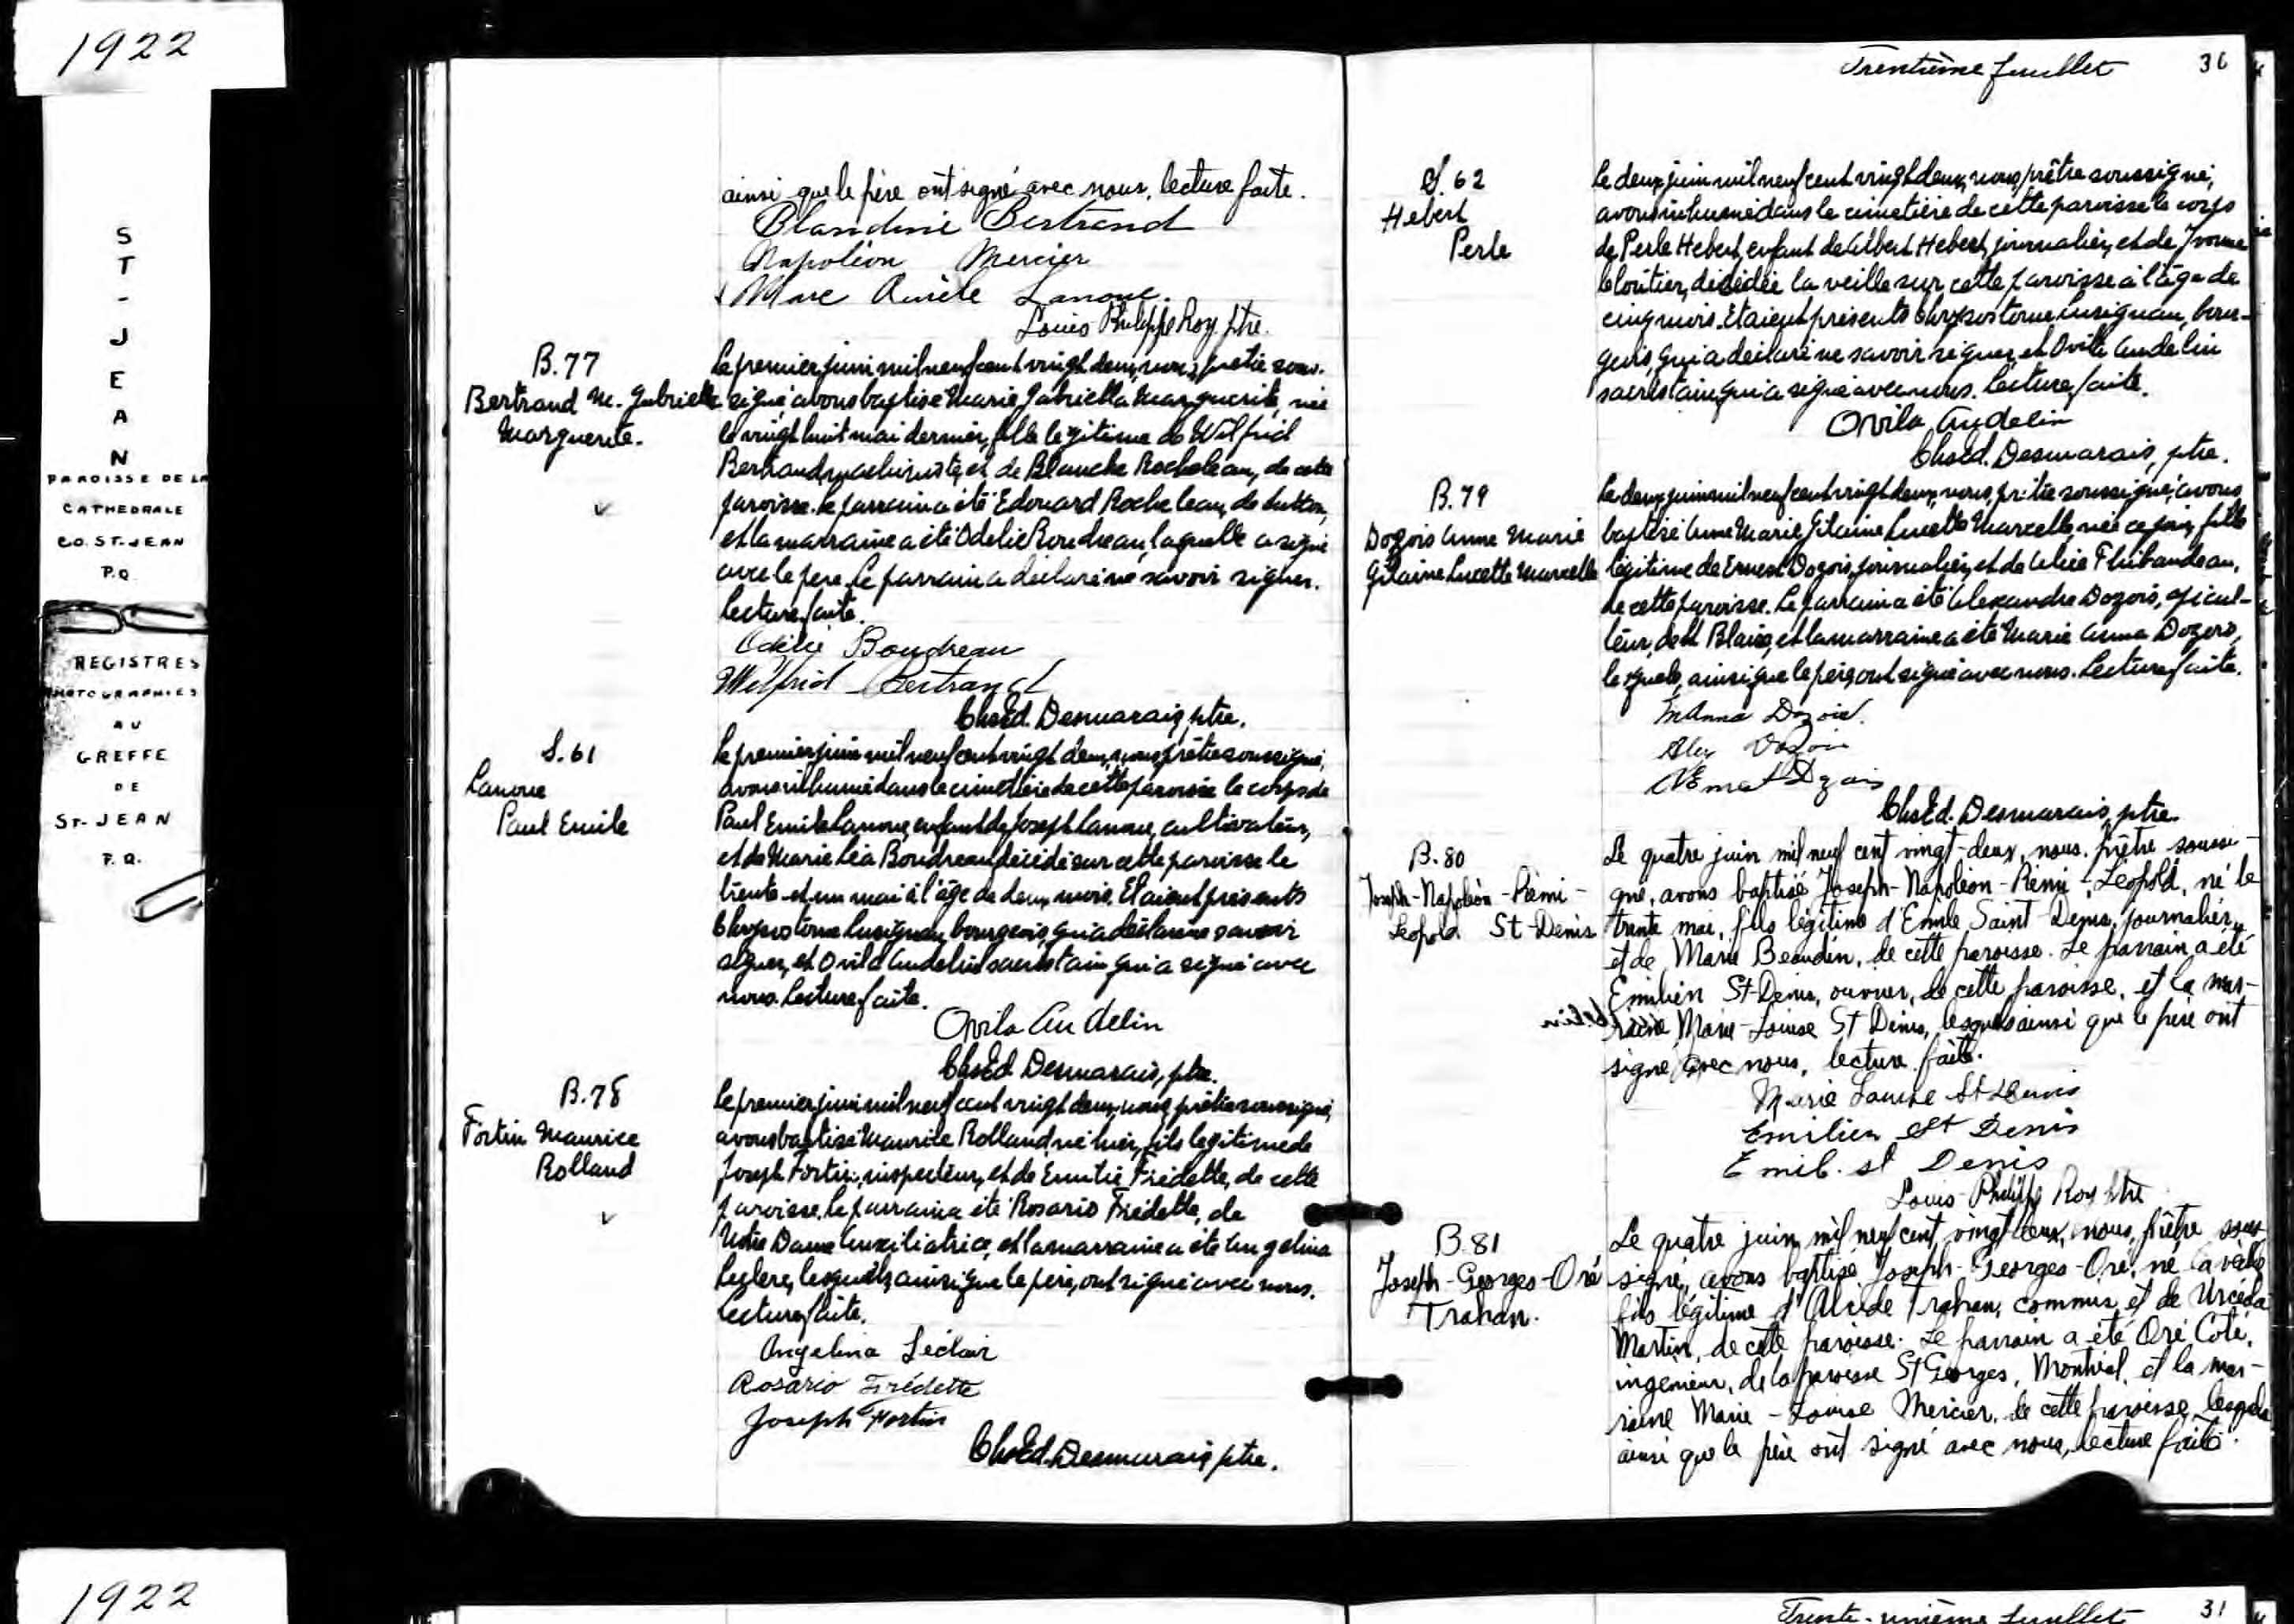 1922
S
T
-
J
E
A
N
PAROISSE DE LA
CATHEDRALE
CO. ST-JEAN
P.Q.
REGISTRES
PHOTOGRAPHIES
AU
GREFFE
DE
ST-JEAN
P.Q.
1922
ainsi que le père ont signé avec nous, lecture faite.
Blandine Bertrand
Napoléon Mercier
Marc Aurèle Lanoue.
Louis Philippe Roy ptre.
B.77
Bertrand M. Gabrielle
Marguerite.
Le premier juin mil neuf cent vingt deux, nous, prêtre sous-
signé, avons baptisé Marie Gabriella Marguerite, née
le vingt huit mai dernier, fille légitime de Wilfrid
Bertrand, machiniste, et de Blanche Rocheleau, de cette
paroisse. Le parrain a été Edouard Rocheleau, de Sutton,
et la marraine a été Odélie Boudreau, laquelle a signé
avec le père. Le parrain a déclaré ne savoir signer.
Lecture faite.
Odélie Boudreau
Wilfrid Bertrand
Chs Ed. Desmarais, ptre.
S.61
Lanoue
Paul Emile
Le premier juin mil neuf cent vingt deux, nous, prêtre soussigné,
avons inhumé dans le cimetière de cette paroisse le corps de
Paul Emile Lanoue, enfant de Joseph Lanoue, cultivateur,
et de Marie Léa Boudreau, décédé sur cette paroisse le
trente-et-un mai à l'âge de deux mois. Etaient présents
Chrysostome Lusignan, bourgeois, qui a déclaré ne savoir
signer, et Ovila Audelin sacristain qui a signé avec
nous. Lecture faite.
Ovila Audelin
Chs Ed. Desmarais, ptre.
B.78
Fortin Maurice
Rolland
Le premier juin mil neuf cent vingt deux, nous, prêtre soussigné,
avons baptisé Maurice Rolland, né hier, fils légitime de
Joseph Fortin, inspecteur, et de Emilie Frédette, de cette
paroisse. Le parrain a été Rosario Frédette, de
Notre Dame Auxiliatrice, et la marraine a été Angelina
Leclerc, lesquels, ainsi que le père, ont signé avec nous.
Lecture faite.
Angelina Léclair
Rosario Frédette
Joseph Fortin
Chs Ed. Desmarais, ptre.
Trentième feuillet 30
S.62
Hebert
Perle
Le deux juin mil neuf cent vingt deux, nous, prêtre soussigné,
avons inhumé dans le cimetière de cette paroisse le corps
de Perle Hebert, enfant de Albert Hebert, journalier, et de Yvonne
Cloutier, décédée la veille sur cette paroisse à l'âge de
cinq mois. Etaient présents Chrysostome Lusignan, bour-
geois, qui a déclaré ne savoir signer, et Ovila Audelin
sacristain, qui a signé avec nous. Lecture faite.
Ovila Audelin
Chs Ed. Desmarais, ptre.
B.79
Dozois Anne Marie
Gilaine Lucette Marcelle
Le deux juin mil neuf cent vingt deux, nous, prêtre soussigné, avons
baptisé Anne Marie Gilaine Lucette Marcelle, née ce jour, fille
légitime de Ernest Dozois, journalier, et de Alice Thibaudeau,
de cette paroisse. Le parrain a été Alexandre Dozois, agricul-
teur, de St Blaise, et la marraine a été Marie Anna Dozois,
lesquels, ainsi que le père, ont signé avec nous. Lecture faite.
M Anna Dozois.
Alex Dozois
Ernest Dozois
Chs Ed. Desmarais, ptre.
B.80
Joseph-Napoléon-Rémi-
Léopold St-Denis
Le quatre juin mil neuf cent vingt-deux, nous, prêtre soussi-
gné, avons baptisé Joseph-Napoléon-Rémi-Léopold, né le
trente mai, fils légitime d'Emile Saint-Denis, journalier,
et de Marie Beaudin, de cette paroisse. Le parrain a été
Emilien St-Denis, ouvrier, de cette paroisse, et la mar-
raine Marie-Louise St Denis, lesquels ainsi que le père ont
signé avec nous, lecture faite.
Marie Louise St Denis
Emilien St Denis
Emile. st Denis
Louis-Philippe Roy ptre
B.81
Joseph-Georges-Oré
Trahan.
Le quatre juin mil neuf cent vingt-deux, nous, prêtre sous-
signé, avons baptisé Joseph-Georges-Oré, né la veille
fils légitime d'Alcide Trahan, commis, et de Urcéda
Martin, de cette paroisse. Le parrain a été Oré Coté,
ingénieur, de la paroisse St Georges, Montréal, et la mar-
raine Marie-Louise Mercier, de cette paroisse, lesquels
ainsi que le père ont signé avec nous, lecture faite.
Trente-unième feuillet 31